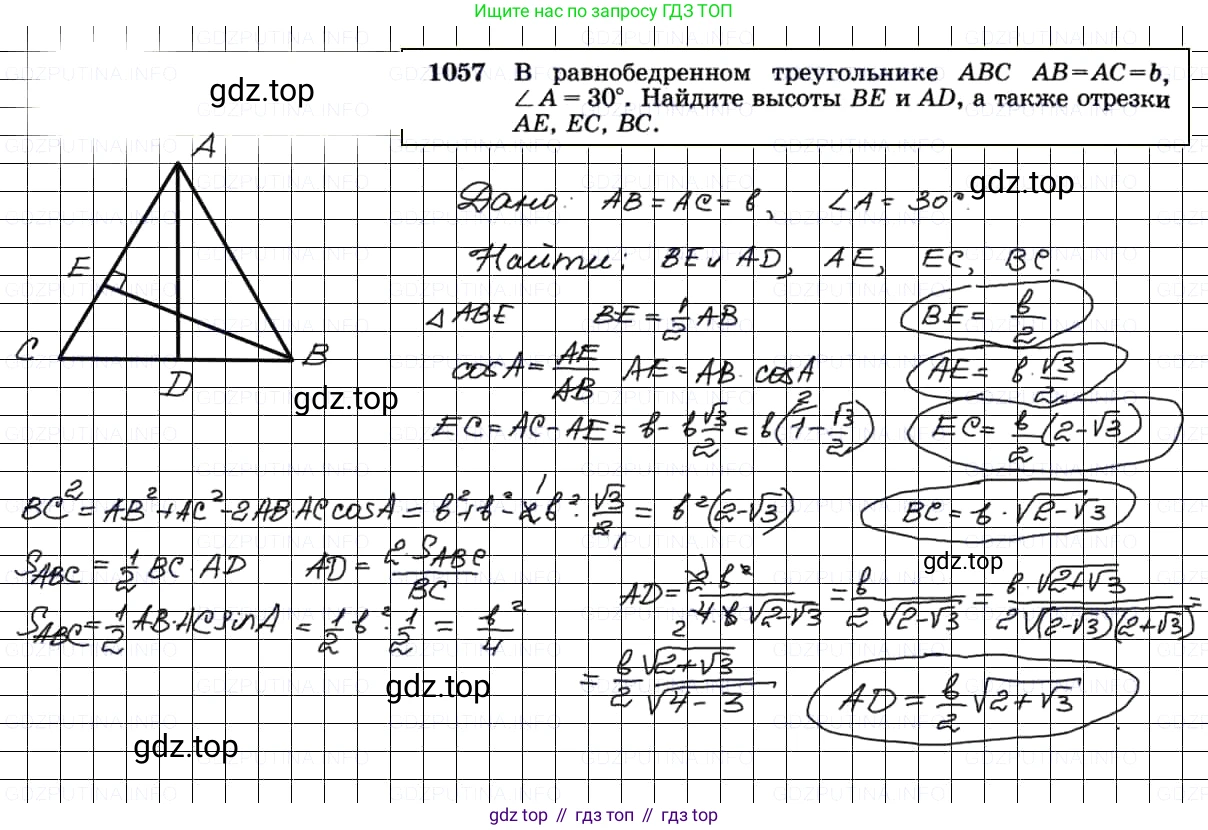 Ищите нас по запросу ГДЗ ТОП
1057 В равнобедренном треугольнике ABC AB=AC=b,
∠A=30°. Найдите высоты BE и AD, а также отрезки
AE, EC, BC.
gdz.top
A
E
C
B
D
gdz.top
Дано: AB = AC = b, ∠A = 30°.
gdz.top
Найти: BE и AD, AE, EC, BC.
△ABE BE = 1/2 AB BE = b/2
cos A = AE/AB AE = AB · cos A AE = b · √3/2
EC = AC − AE = b − b √3/2 = b(1 − √3/2) EC = b/2 (2 − √3)
BC² = AB² + AC² − 2AB·AC cos A = b² + b² − 2b² · √3/2 = b²(2 − √3) BC = b · √(2 − √3)
gdz.top
S_ABC = 1/2 BC · AD AD = 2·S_ABC/BC
S_ABC = 1/2 AB·AC sin A = 1/2 b² · 1/2 = b²/4
AD = 2·b²/(4·b √(2−√3)) = b/(2 √(2−√3)) = b·√(2+√3)/(2√((2−√3)(2+√3))) =
= b√(2+√3)/(2√(4−3)) AD = b/2 √(2+√3)
gdz.top
gdz.top
gdz.top // гдз топ // gdz.top